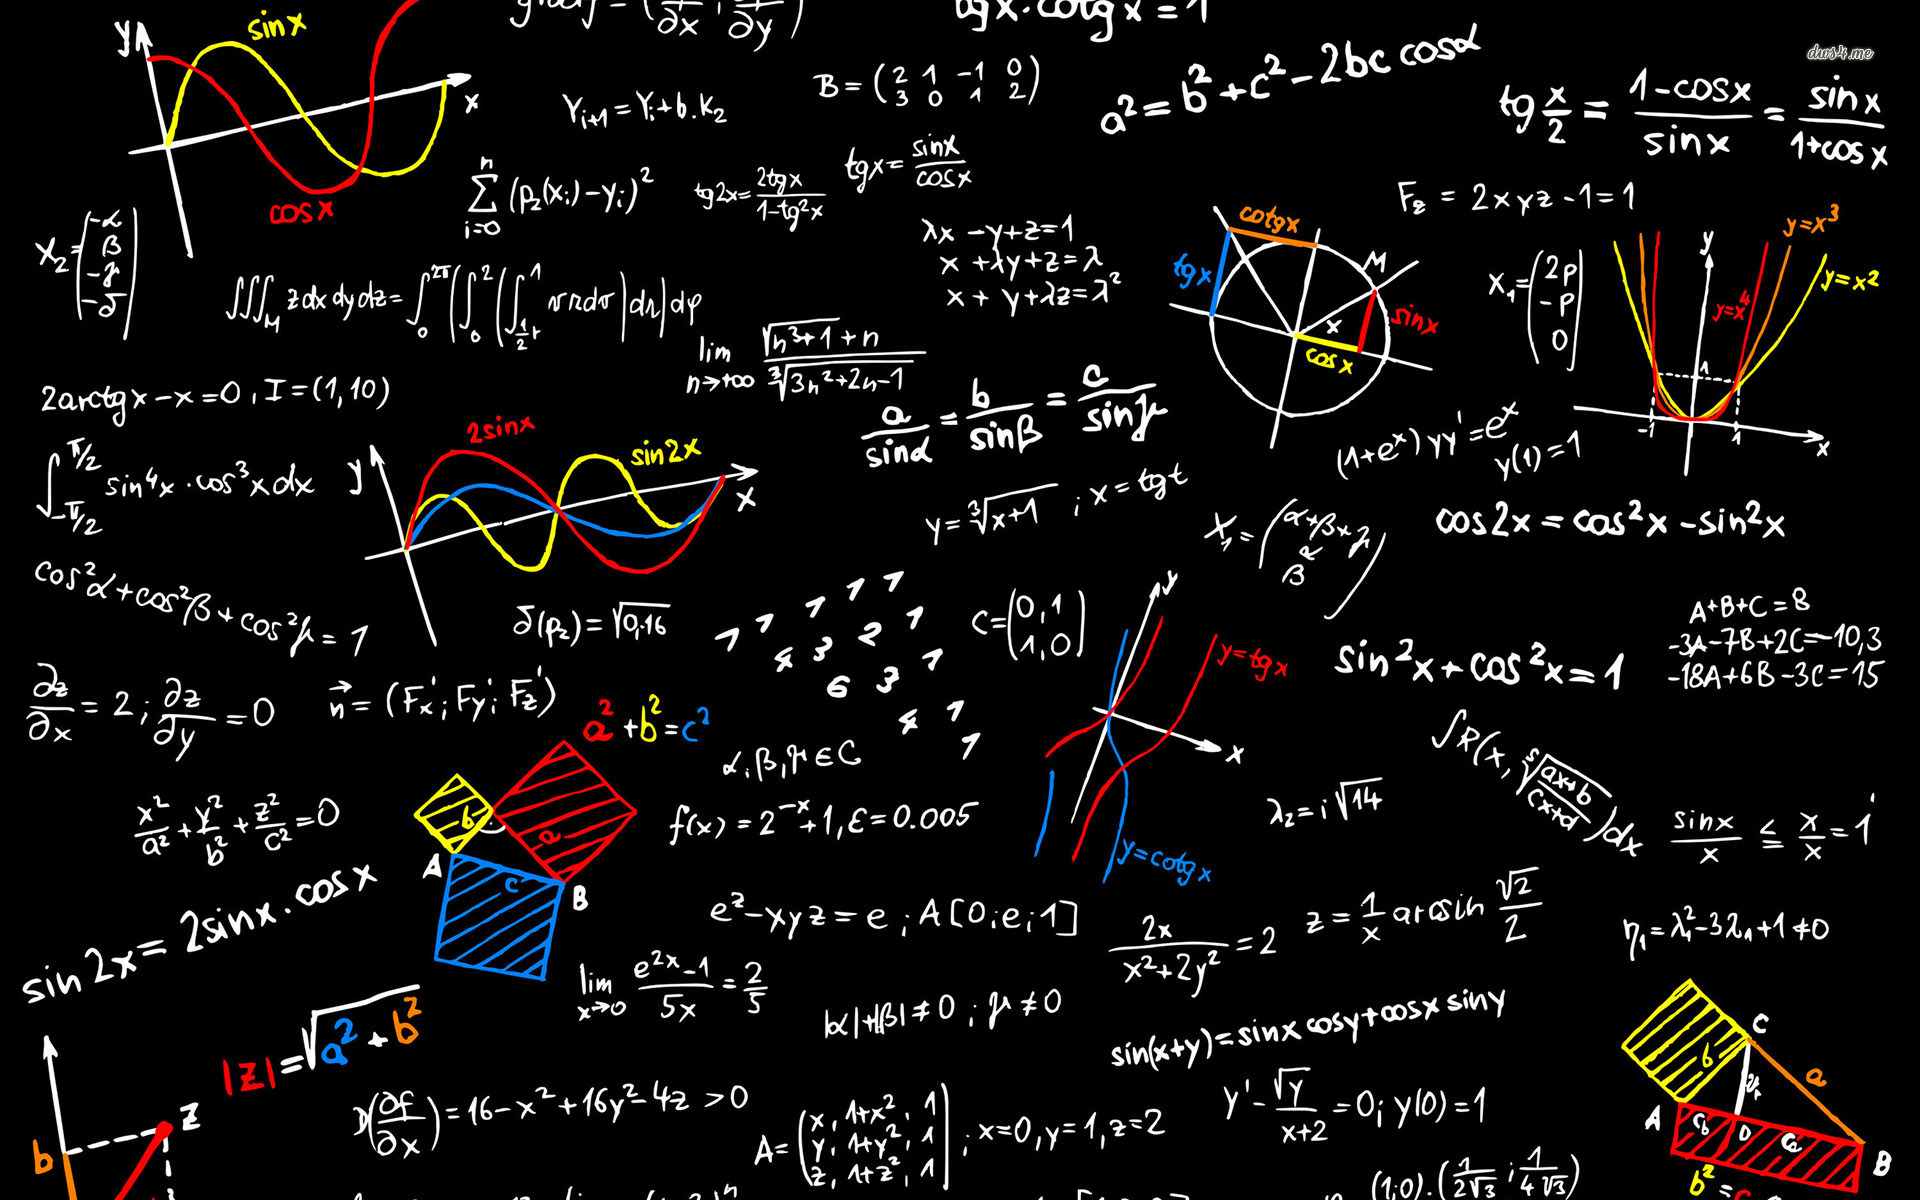 y
sin x
x
cos x
tg x · cotg x = 1
dws4.me
Y_{i+1} = Y_i + b · K_2
B = (2 1 -1 0
3 0 1 2)
a² = b² + c² - 2bc cos α
tg x/2 = (1 - cos x)/(sin x) = (sin x)/(1 + cos x)
∑_{i=0}^{n} (p_2(x_i) - y_i)²
tg 2x = (2 tg x)/(1 - tg² x)
tg x = (sin x)/(cos x)
F_z = 2xyz - 1 = 1
X_2 = (-α
β
-γ
-δ)
λx - y + z = 1
x + λy + z = λ
x + y + λz = λ²
cotg x
tg x
M
sin x
x
cos x
X_1 = (2p
-p
0)
y
y = x³
y = x²
y = x⁴
1
-1
1
x
∭_M z dx dy dz = ∫_0^{2π} (∫_0^2 (∫_{½r}^1
lim n→+∞ (√(n³+1) + n)/(∛(3n²+2n-1))
2arctg x - x = 0, I = (1, 10)
a/(sin α) = b/(sin β) = c/(sin γ)
(1 + e^x) y y' = e^x
y(1) = 1
∫_{-π/2}^{π/2} sin⁴x · cos³x dx
y
2sin x
sin 2x
x
y = ∛(x+1) ; x = tg t
X_1 = (α+β+γ
α
β)
cos 2x = cos²x - sin²x
cos²α + cos²β + cos²γ = 1
δ(p_2) = √0,16
1 1 1 1 1
4 3 2 1
6 3 1
4 1
1
C = (0, 1
1, 0)
y
y = tg x
x
y = cotg x
sin²x + cos²x = 1
A+B+C = 8
-3A-7B+2C=-10,3
-18A+6B-3C=15
∂z/∂x = 2 ; ∂z/∂y = 0
n⃗ = (F_x'; F_y'; F_z')
a² + b² = c²
α, β, γ ∈ C
∫R(x, ⁵√((ax+b)/(cx+d)))dx
x²/a² + y²/b² + z²/c² = 0
b
a
A
c
B
f(x) = 2^{-x} + 1, ε = 0.005
λ_2 = i√14
(sin x)/x ≤ x/x = 1
sin 2x = 2sin x · cos x
e^z - xyz = e ; A[0;e;1]
2x/(x²+2y²) = 2
z = 1/x arcsin √2/2
η_1 = λ_1² - 3λ_1 + 1 ≠ 0
lim x→0 (e^{2x} - 1)/5x = 2/5
|α|+|β| ≠ 0 ; γ ≠ 0
sin(x+y) = sin x cos y + cos x sin y
|z| = √(a² + b²)
b
z
(∂f/∂x) = 16 - x² + 16y² - 4z > 0
A = (x, 1+x², 1
y, 1+y², 1
z, 1+z², 1) ; x=0, y=1, z=2
y' - √y/(x+2) = 0; y(0) = 1
C
b
a
A
c_b
D
B
b² =
(1;0) · (1/(2√3) ; 1/(4√3))